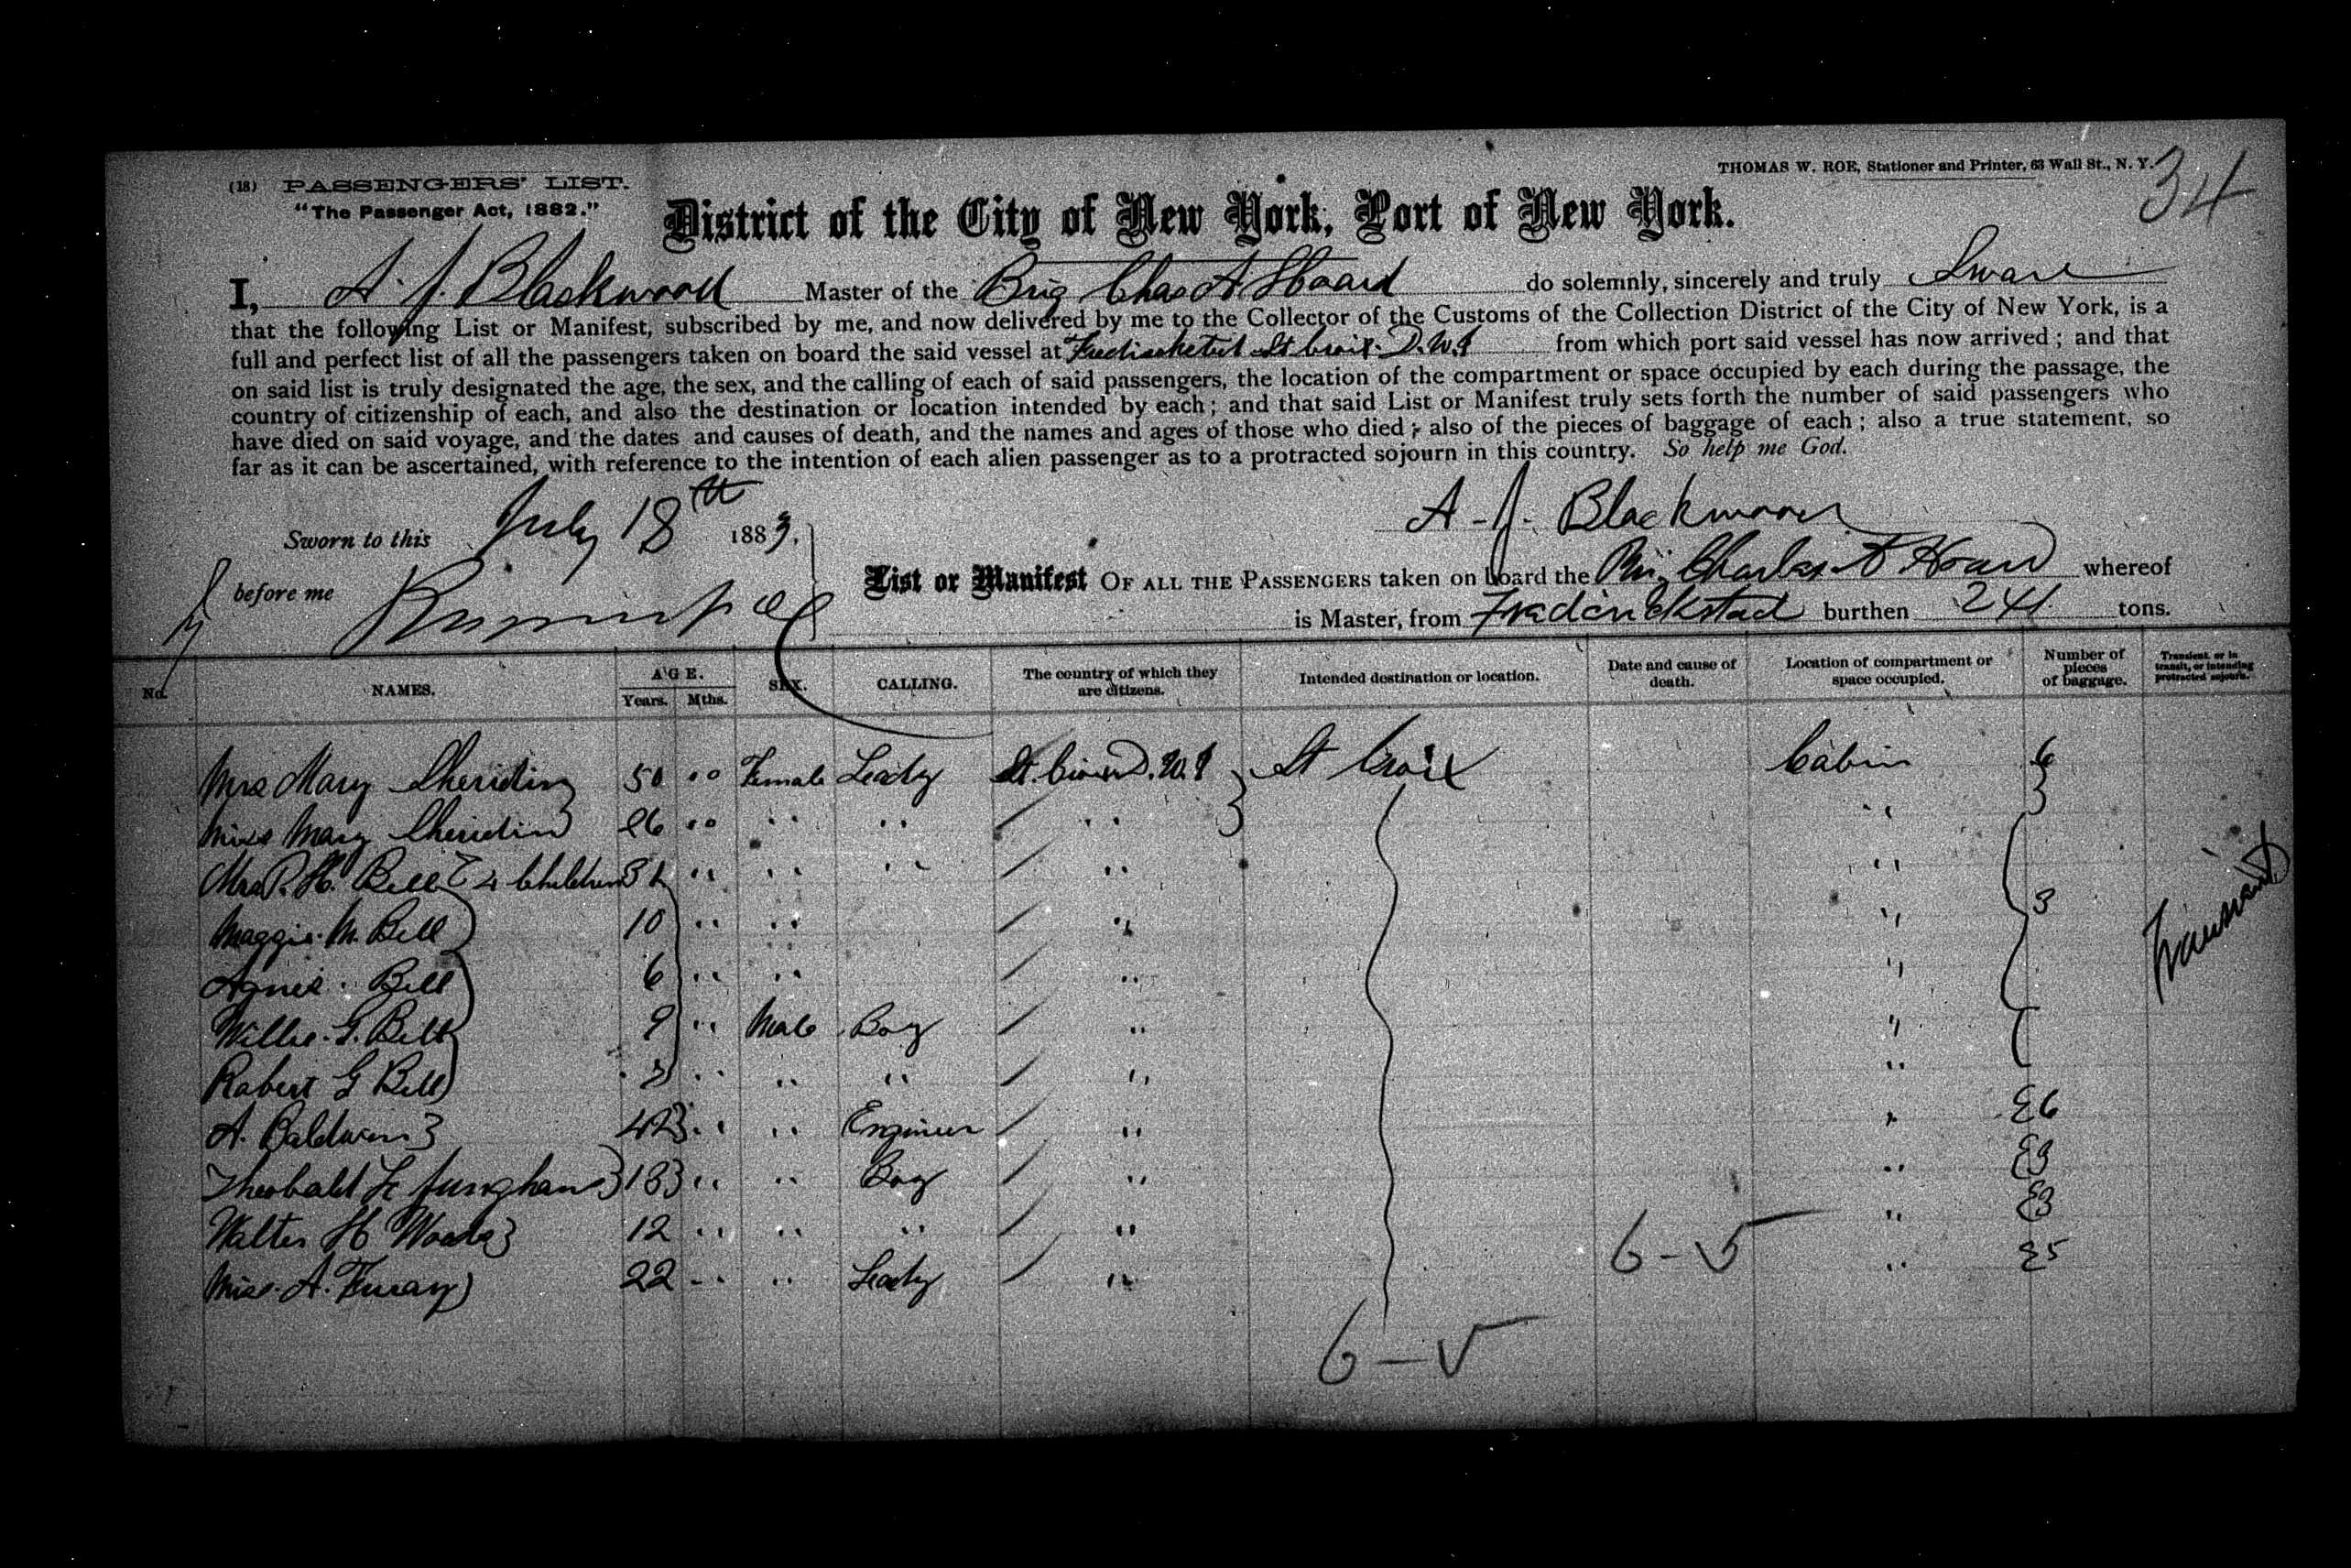 THOMAS W. ROE, Stationer and Printer, 63 Wall St., N. Y.
34
(18) PASSENGERS' LIST.
"The Passenger Act, 1882."
District of the City of New York, Port of New York.
I, A. J. Blackwood Master of the Brig Chas A Hoard do solemnly, sincerely and truly Swear
that the following List or Manifest, subscribed by me, and now delivered by me to the Collector of the Customs of the Collection District of the City of New York, is a
full and perfect list of all the passengers taken on board the said vessel at St Croix D.W.I from which port said vessel has now arrived; and that
on said list is truly designated the age, the sex, and the calling of each of said passengers, the location of the compartment or space occupied by each during the passage, the
country of citizenship of each, and also the destination or location intended by each; and that said List or Manifest truly sets forth the number of said passengers who
have died on said voyage, and the dates and causes of death, and the names and ages of those who died; also of the pieces of baggage of each; also a true statement, so
far as it can be ascertained, with reference to the intention of each alien passenger as to a protracted sojourn in this country. So help me God.
A. J. Blackwood
Sworn to this July 18th 1883.
before me
List or Manifest OF ALL THE PASSENGERS taken on board the Brig Charles A Hoard whereof
is Master, from Frederickstad burthen 241 tons.
No. NAMES. AGE. Years. Mths. SEX. CALLING. The country of which they are citizens. Intended destination or location. Date and cause of death. Location of compartment or space occupied. Number of pieces of baggage. Transient, or in transit, or intending protracted sojourn.
Mrs Mary Sheridin 50 " Female Lady St. Croix D.W.I St Croix Cabin 6
Miss Mary Sheridin 26 " " " " "
Mrs P. H. Bell & 4 Children " " " " "
Maggie M. Bell 10 " " " " 3
Agnes Bell 6 " " " "
Willie G. Bell 9 " Male Boy " "
Robert G Bell " " " " "
A. Baldwin 42 " " Engineer " " 6
Theobald Junghans 18 " " Boy " " 3
Walter H Woods 12 " " " " " 3
Miss A. 22 " " Lady " " 5
Transient
6-5
6-5